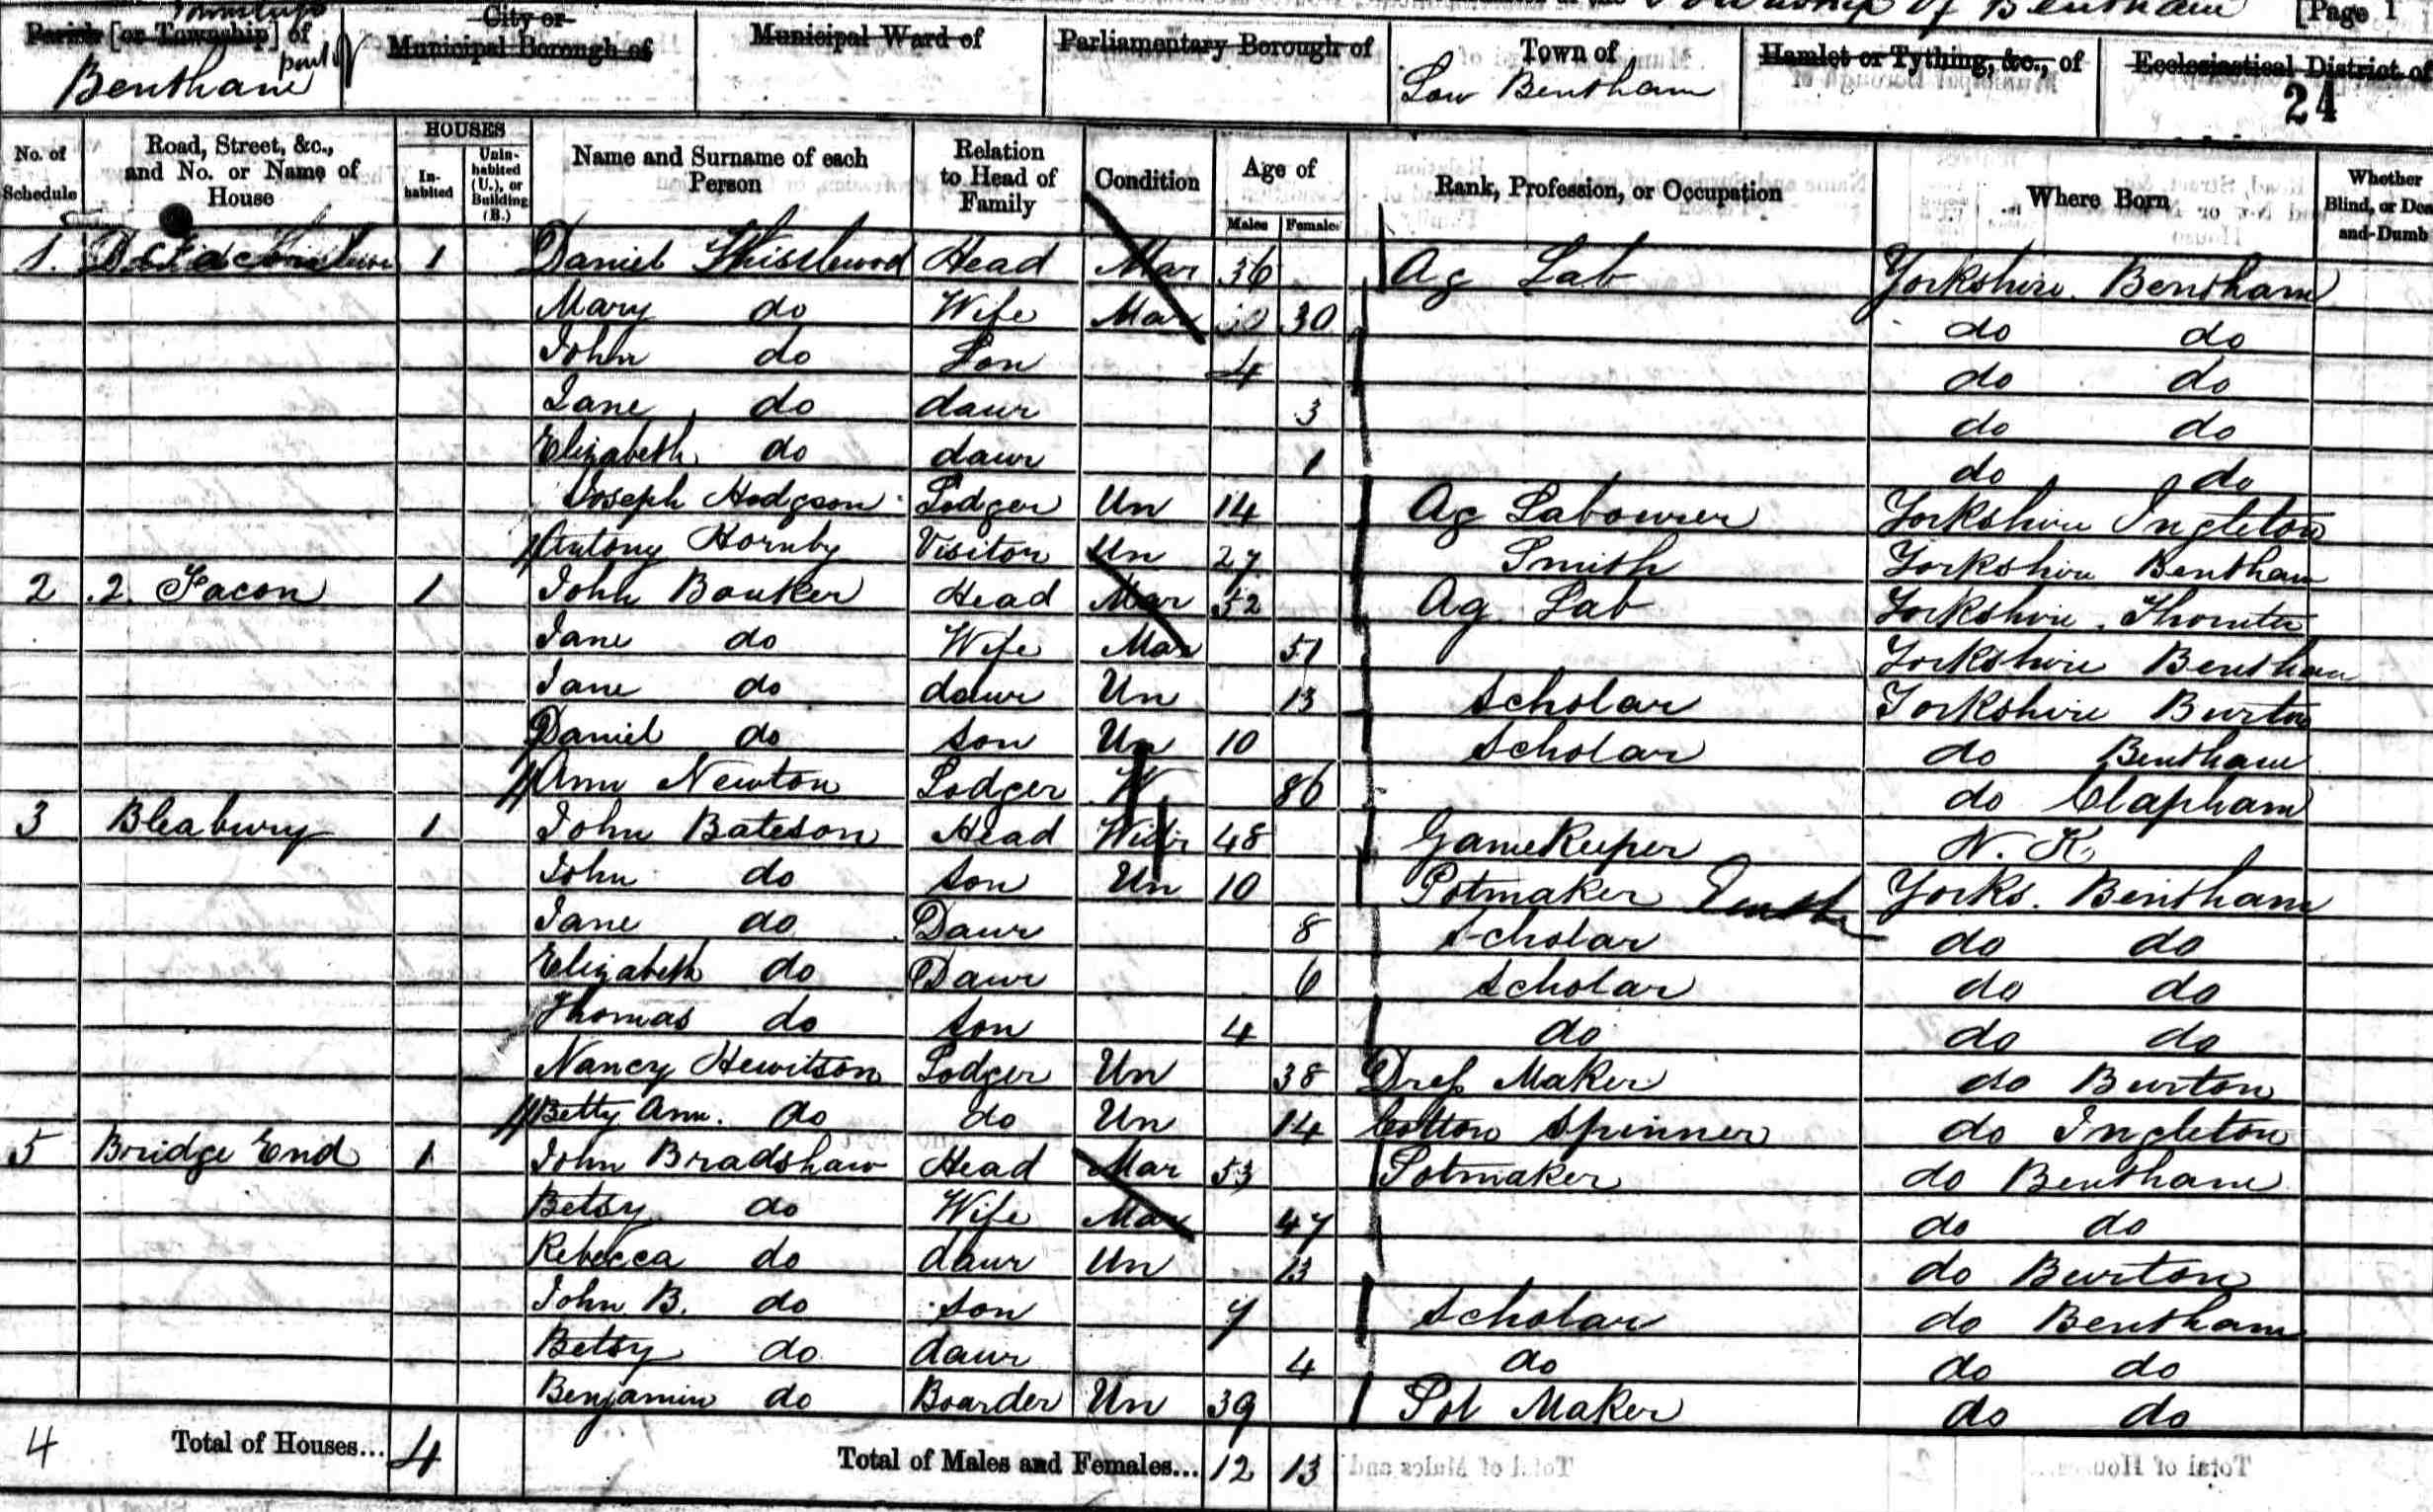 Township of Bentham [Page 1
Township
Parish [or Township] of
Bentham part of
City or
Municipal Borough of
Municipal Ward of
Parliamentary Borough of
Town of
Low Bentham
Hamlet or Tything, &c., of
Ecclesiastical District of
24
No. of Schedule
Road, Street, &c., and No. or Name of House
HOUSES
In-habited
Unin-habited (U.), or Building (B.)
Name and Surname of each Person
Relation to Head of Family
Condition
Age of
Males Females
Rank, Profession, or Occupation
Where Born
Whether Blind, or Deaf-and-Dumb
1. 1 Daniel Thistlewood Head Mar 36 Ag Lab Yorkshire Bentham
Mary do Wife Mar 30 do do
John do Son 4 do do
Jane do daur 3 do do
Elizabeth do daur 1 do do
Joseph Hodgson Lodger Un 14 Ag Labourer Yorkshire Ingleton
Antony Hornby Visitor Un 27 Smith Yorkshire Bentham
2 2. Facon 1 John Bouker Head Mar 52 Ag Lab Yorkshire Thornton
Jane do Wife Mar 51 Yorkshire Bentham
Jane do daur Un 13 Scholar Yorkshire Burton
Daniel do son Un 10 Scholar do Bentham
Ann Newton Lodger W 86 do Clapham
3 Bleabury 1 John Bateson Head Widr 48 GameKeeper N. K.
John do son Un 10 Potmaker Yorks. Bentham
Jane do Daur 8 Scholar do do
Elizabeth do Daur 6 Scholar do do
Thomas do son 4 do do do
Nancy Hewitson Lodger Un 38 Dress Maker do Burton
Betty Ann. do do Un 14 Cotton Spinner do Ingleton
5 Bridge End 1 John Bradshaw Head Mar 53 Potmaker do Bentham
Betsy do Wife Mar 47 do do
Rebecca do daur Un 13 do Burton
John B. do son 7 Scholar do Bentham
Betsy do daur 4 do do do
Benjamin do Boarder Un 39 Pot Maker do do
4 Total of Houses... 4 Total of Males and Females... 12 13